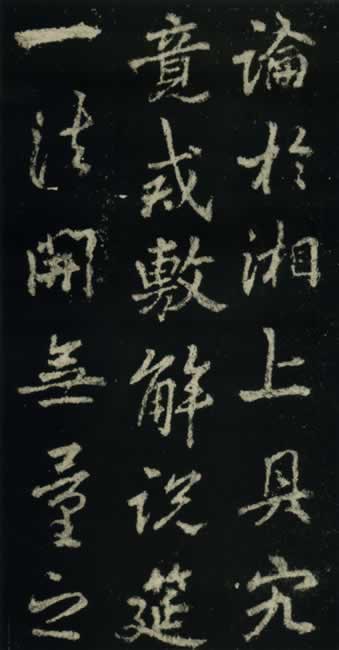 論於湘上具究
竟戒敷解説筵
一法開無量之